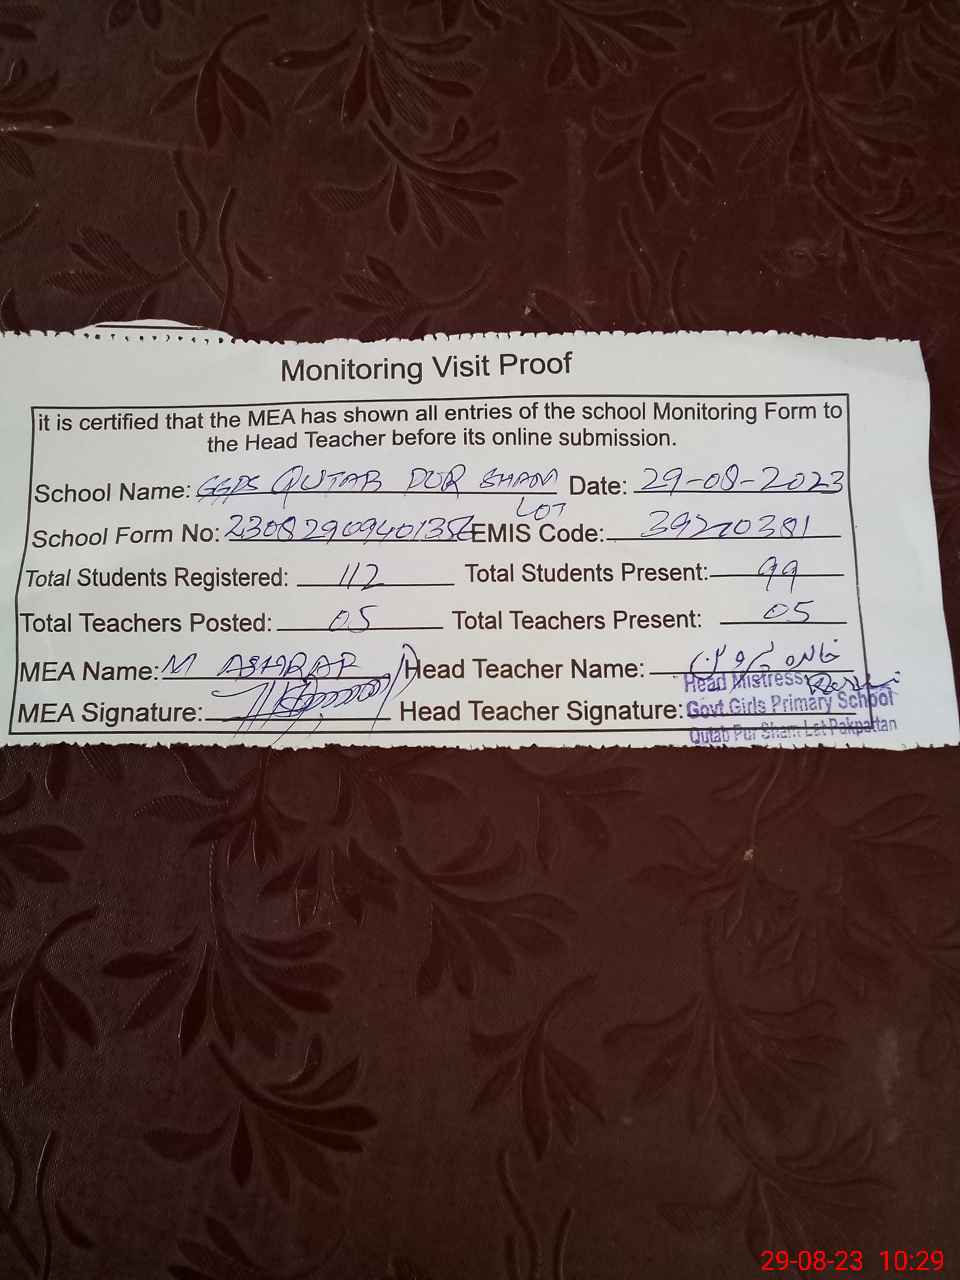 Monitoring Visit Proof
it is certified that the MEA has shown all entries of the school Monitoring Form to
the Head Teacher before its online submission.
School Name: GGPS QUTAB PUR SHAM LOT Date: 29-08-2023
School Form No: EMIS Code: 39220381
Total Students Registered: 112 Total Students Present: 99
Total Teachers Posted: 05 Total Teachers Present: 05
MEA Name: M ASHRAF Head Teacher Name: خالدہ پروین
MEA Signature: Head Teacher Signature:
Head Mistress
Govt Girls Primary School
Qutab Pur Sham Lat Pakpattan
29-08-23 10:29